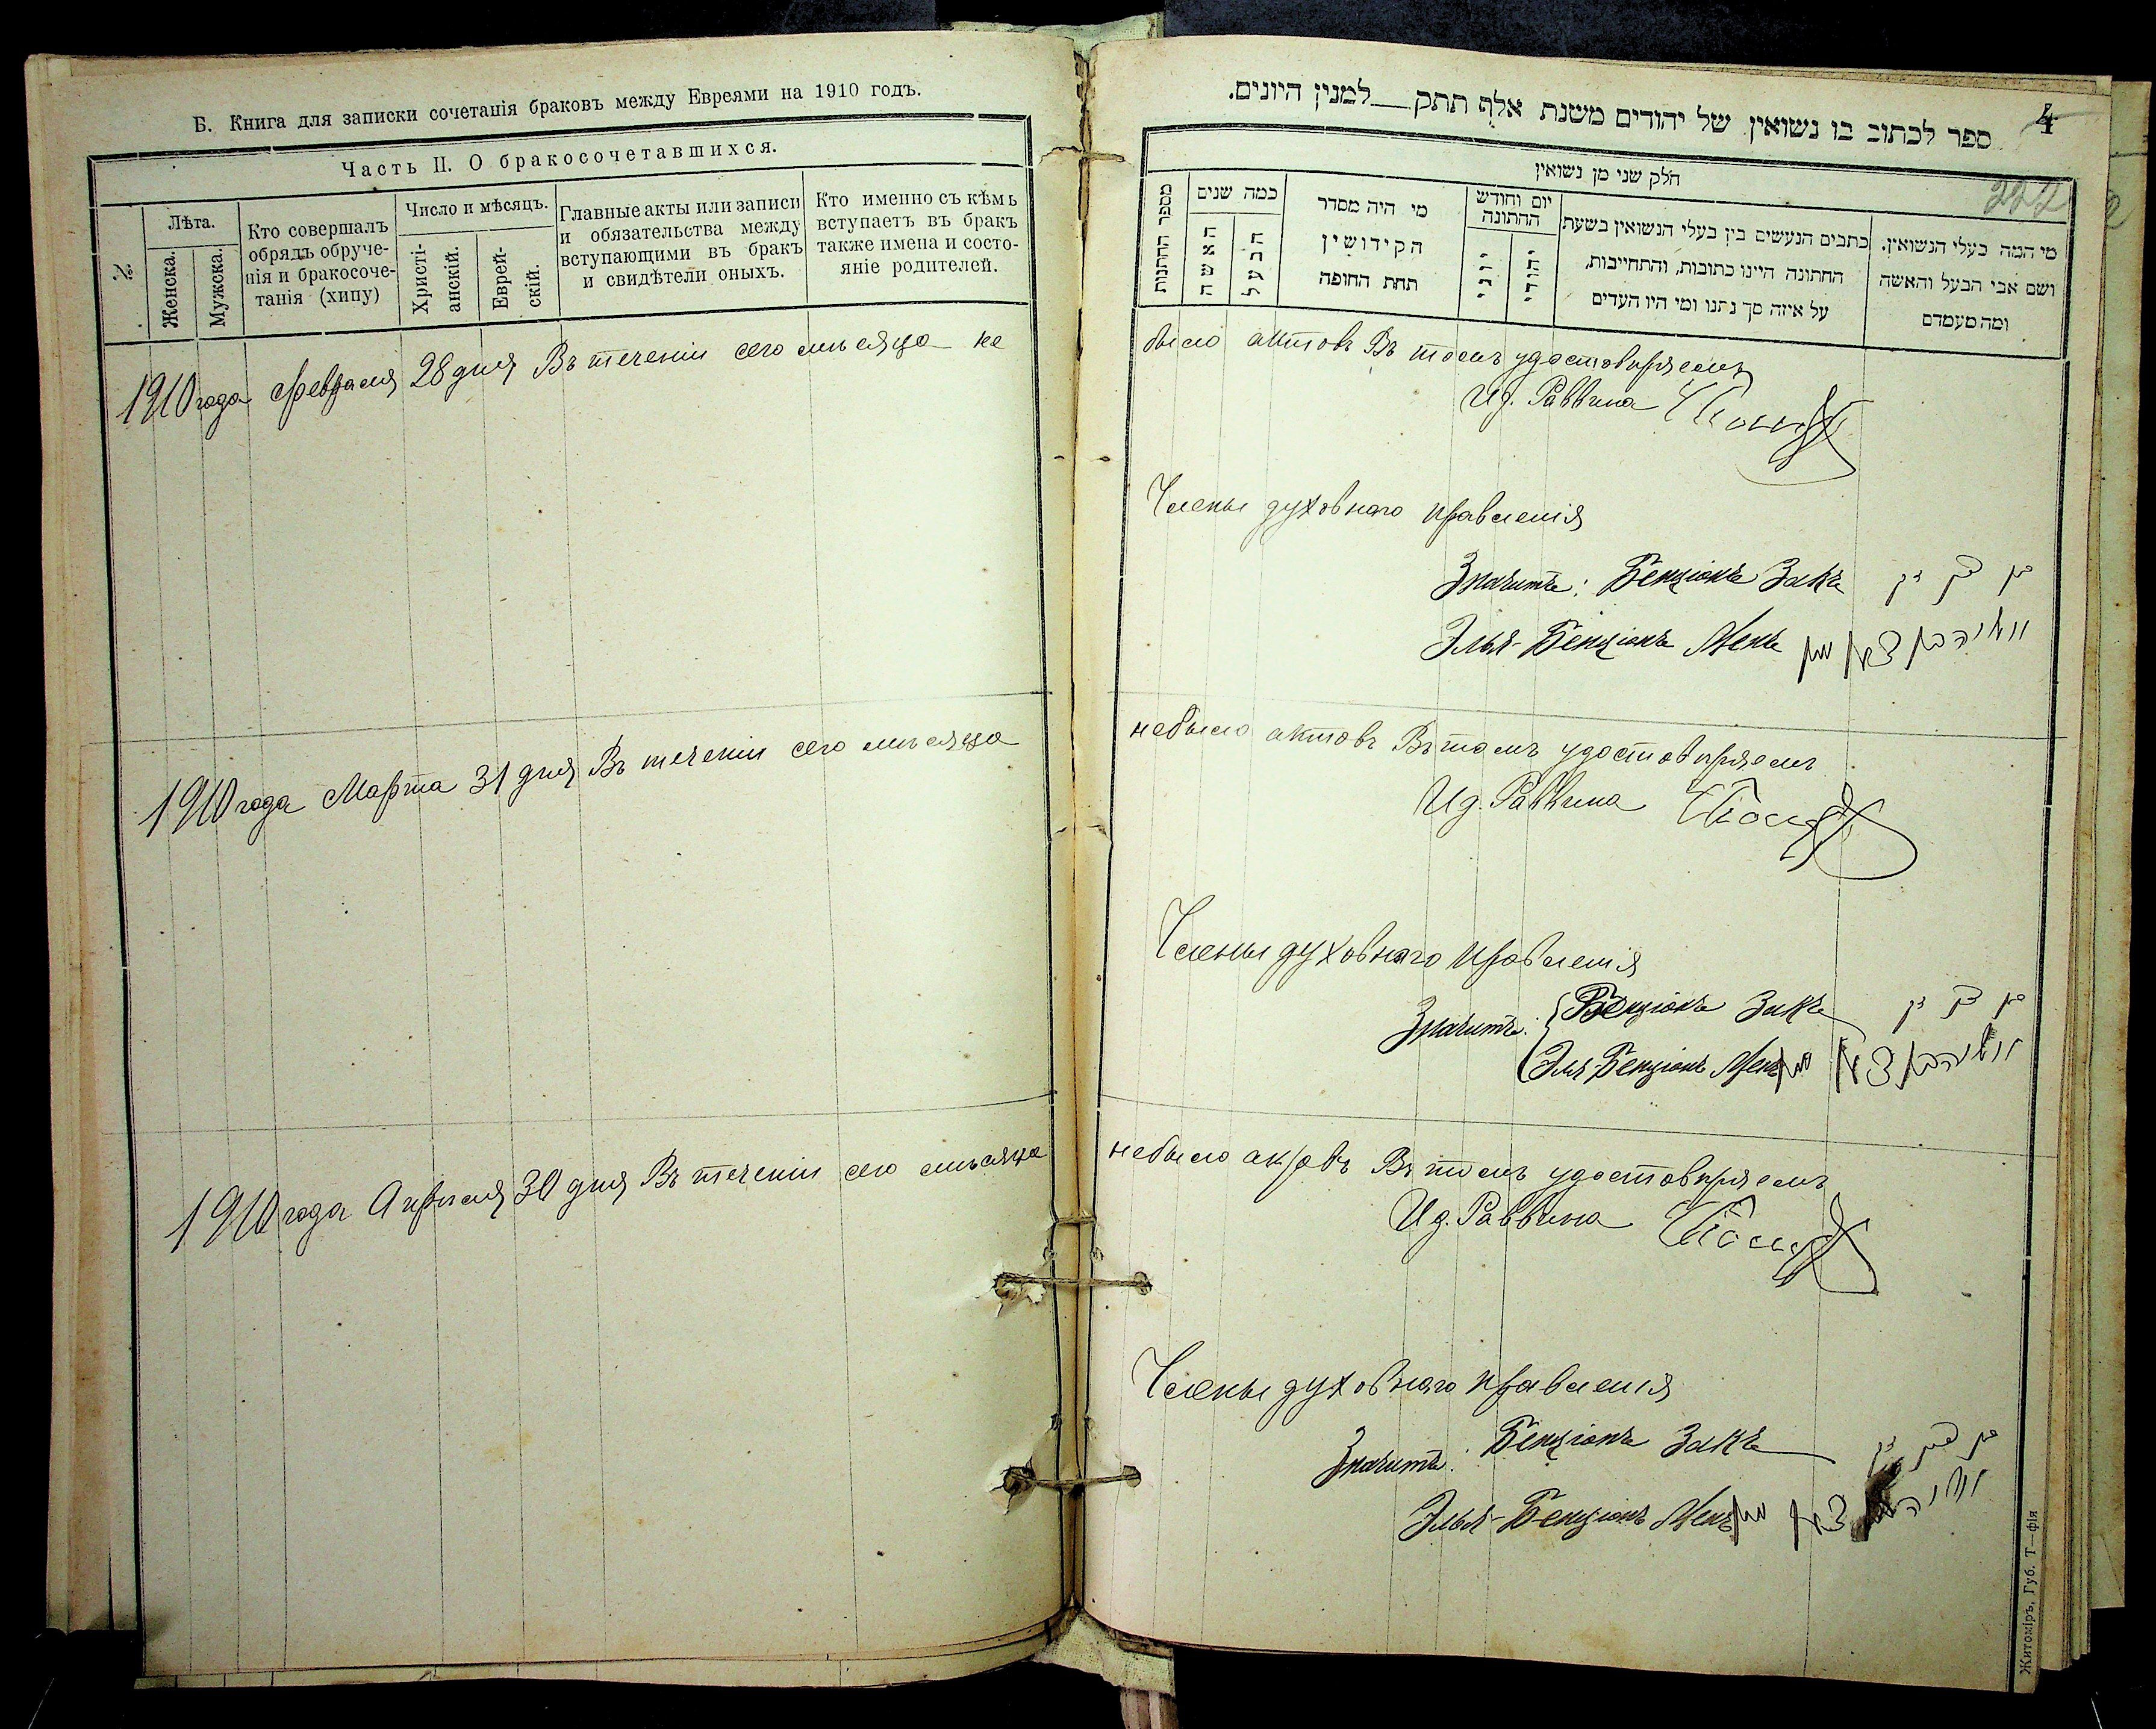 Б. Книга для записки сочетанія браковъ между Евреями на 1910 годъ.
Часть II. О бракосочетавшихся.
№
Лѣта.
Женска.
Мужска.
Кто совершалъ
обрядъ обруче-
нія и бракосоче-
танія (хипу)
Число и мѣсяцъ.
Христі-
анскій.
Еврей-
скій.
Главные акты или записи
и обязательства между
вступающими въ бракъ
и свидѣтели оныхъ.
Кто именно съ кѣмъ
вступаетъ въ бракъ
также имена и состо-
яніе родителей.
1910 года февраля 28 дня Въ теченіи сего мѣсяца не
1910 года Марта 31 дня Въ теченіи сего мѣсяца
1910 года Апрѣля 30 дня Въ теченіи сего мѣсяца
4
ספר לכתוב בו נשואין של יהודים משנת אלף תתק למנין היונים.
חלק שני מן נשואין
222
מספר החתנות
כמה שנים
האשה
הבעל
מי היה מסדר
הקידושין
תחת החופה
יום וחודש
החתונה
יוני
יהודי
כתבים הנעשים בין בעלי הנשואין בשעת
החתונה היינו כתובות, והתחייבות,
על איזה סך נתנו ומי היו העדים
מי המה בעלי הנשואין.
ושם אבי הבעל והאשה
ומה מעמדם
было актовъ Въ томъ удостовѣряемъ
И.д. Раввина
Члены духовнаго правленія
Значитъ: Бенціонъ Закъ בן ציון זק
Элья-Бенціонъ Менъ
небыло актовъ Въ томъ удостовѣряемъ
И.д. Раввина
Члены духовнаго правленія
Значитъ: Бенціонъ Закъ בן ציון זק
Элья-Бенціонъ Менъ
небыло актовъ Въ томъ удостовѣряемъ
И.д. Раввина
Члены духовнаго правленія
Значитъ: Бенціонъ Закъ בן ציון זק
Элья-Бенціонъ Менъ
Житоміръ, Губ. Т—фія